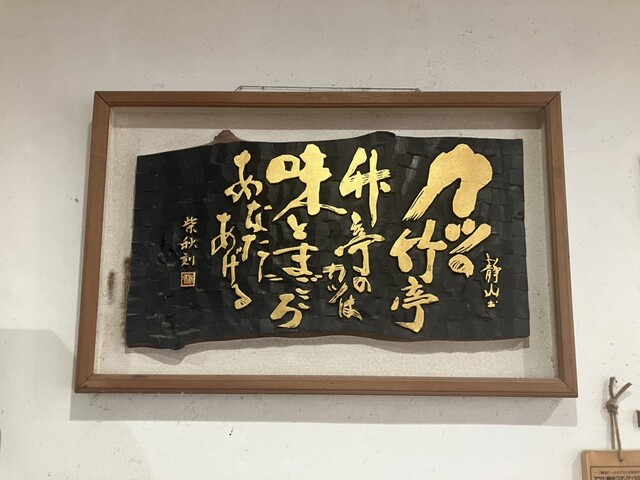 静山
カツの
竹亭
竹亭の
カツは
味とまごころ
あなたに
あげる
柴秋刻